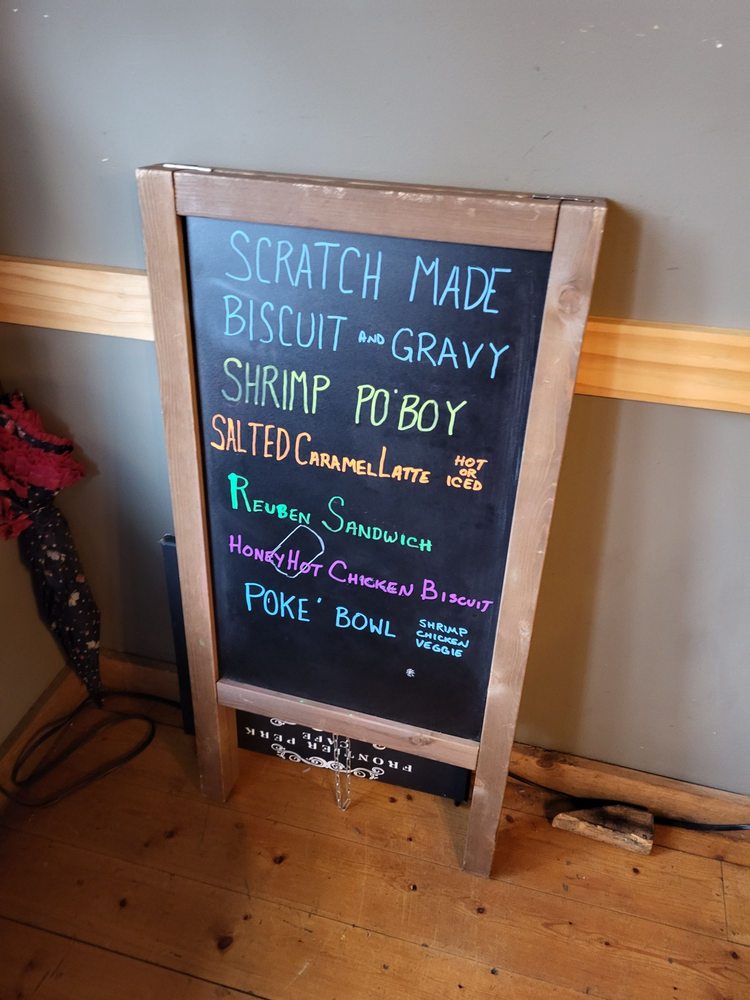 SCRATCH MADE
BISCUIT AND GRAVY
SHRIMP PO'BOY
SALTED CARAMEL LATTE HOT OR ICED
REUBEN SANDWICH
HONEY HOT CHICKEN BISCUIT
POKE' BOWL SHRIMP CHICKEN VEGGIE
FRONTIER PERK
CAFE